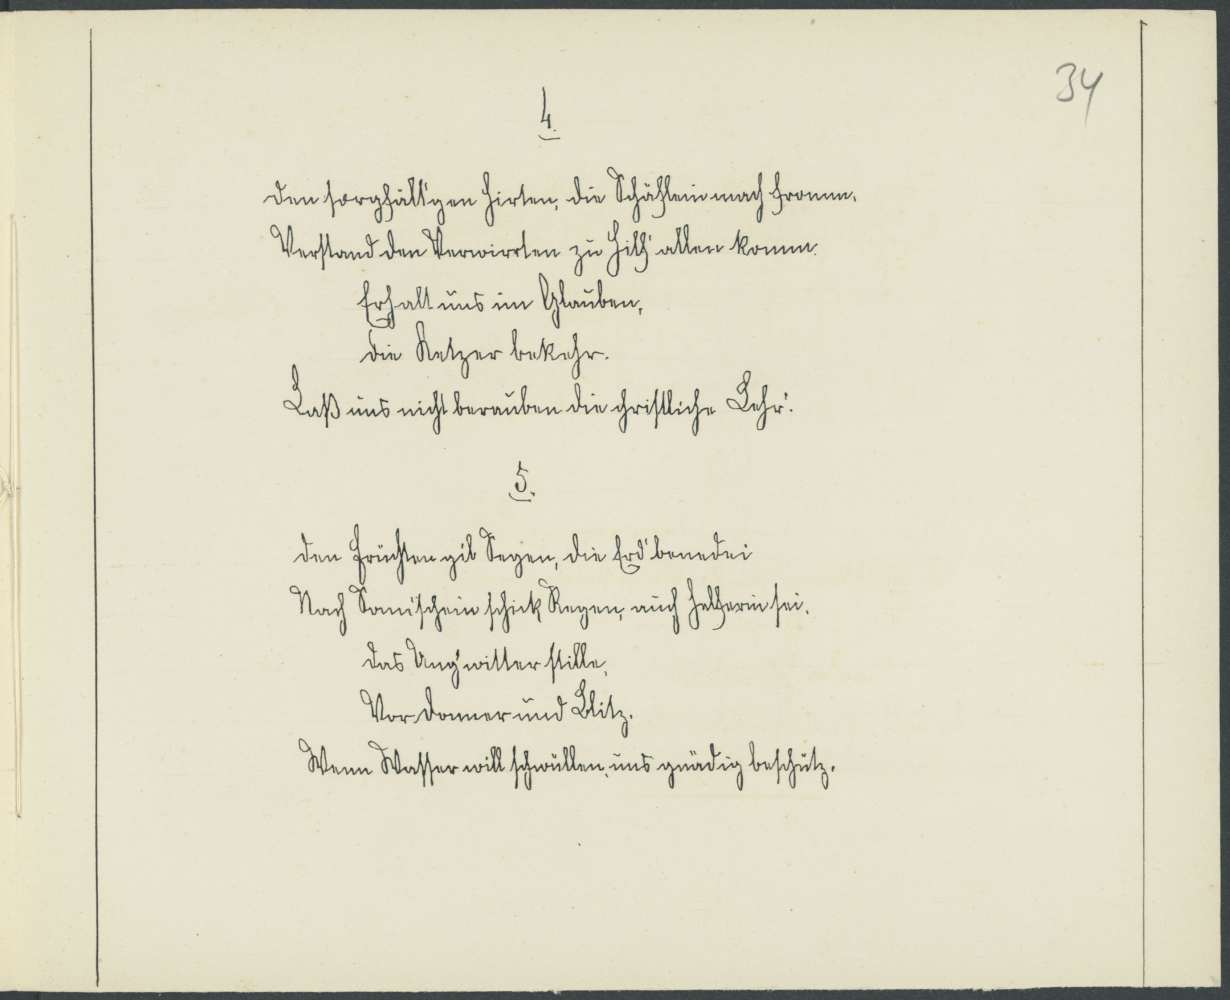 34
4.
Den sorgfält'gen Hirten, die Schäflein mach fromm.
Verstand den Verwirrten zu Hilf' allen komm.
Erhalt uns im Glauben,
die Ketzer bekehr.
Laß uns nicht berauben die christliche Lehr'.
5.
Den Früchten gib Segen, die Erd' benedei
Nach Sonn'schein schick Regen, auch Helferin sei.
Das Ung'witter stille,
Vor Donner und Blitz.
Wenn Wasser will schwüllen, uns gnädig beschütz.